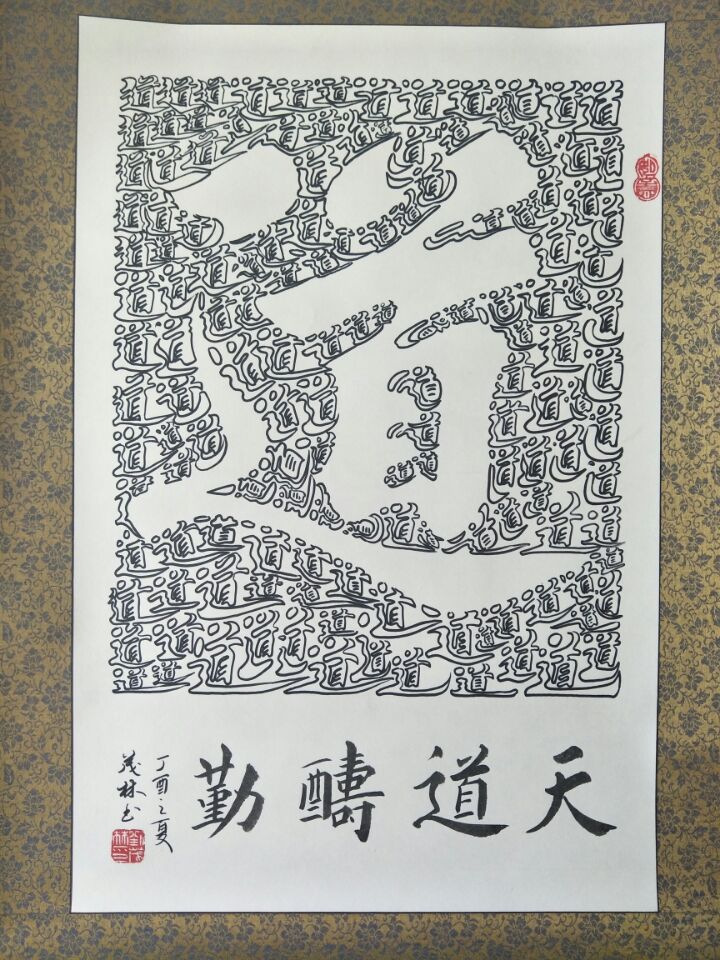 道
天道醻勤
丁酉之夏
茂林书